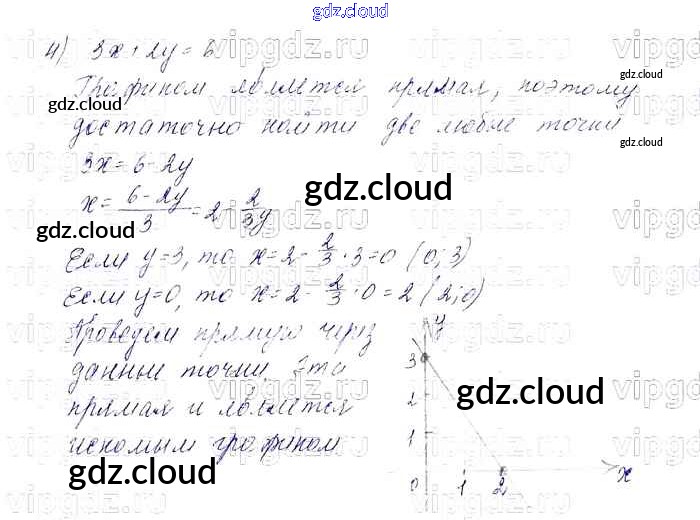 gdz.cloud
4) 3x + 2y = 6
Графиком является прямая, поэтому
достаточно найти две любые точки
3x = 6 - 2y
x = (6 - 2y)/3 = 2 - 2/3y
Если y=3, то x = 2 - 2/3 · 3 = 0 (0; 3)
Если y=0, то x = 2 - 2/3 · 0 = 2 (2; 0)
Проведем прямую через
данные точки Эта
прямая и является
искомым графиком
y
3
2
1
0 1 2 x
gdz.cloud
gdz.cloud
gdz.cloud
gdz.cloud
gdz.cloud
gdz.cloud
gdz.cloud
gdz.cloud
vipgdz.ru